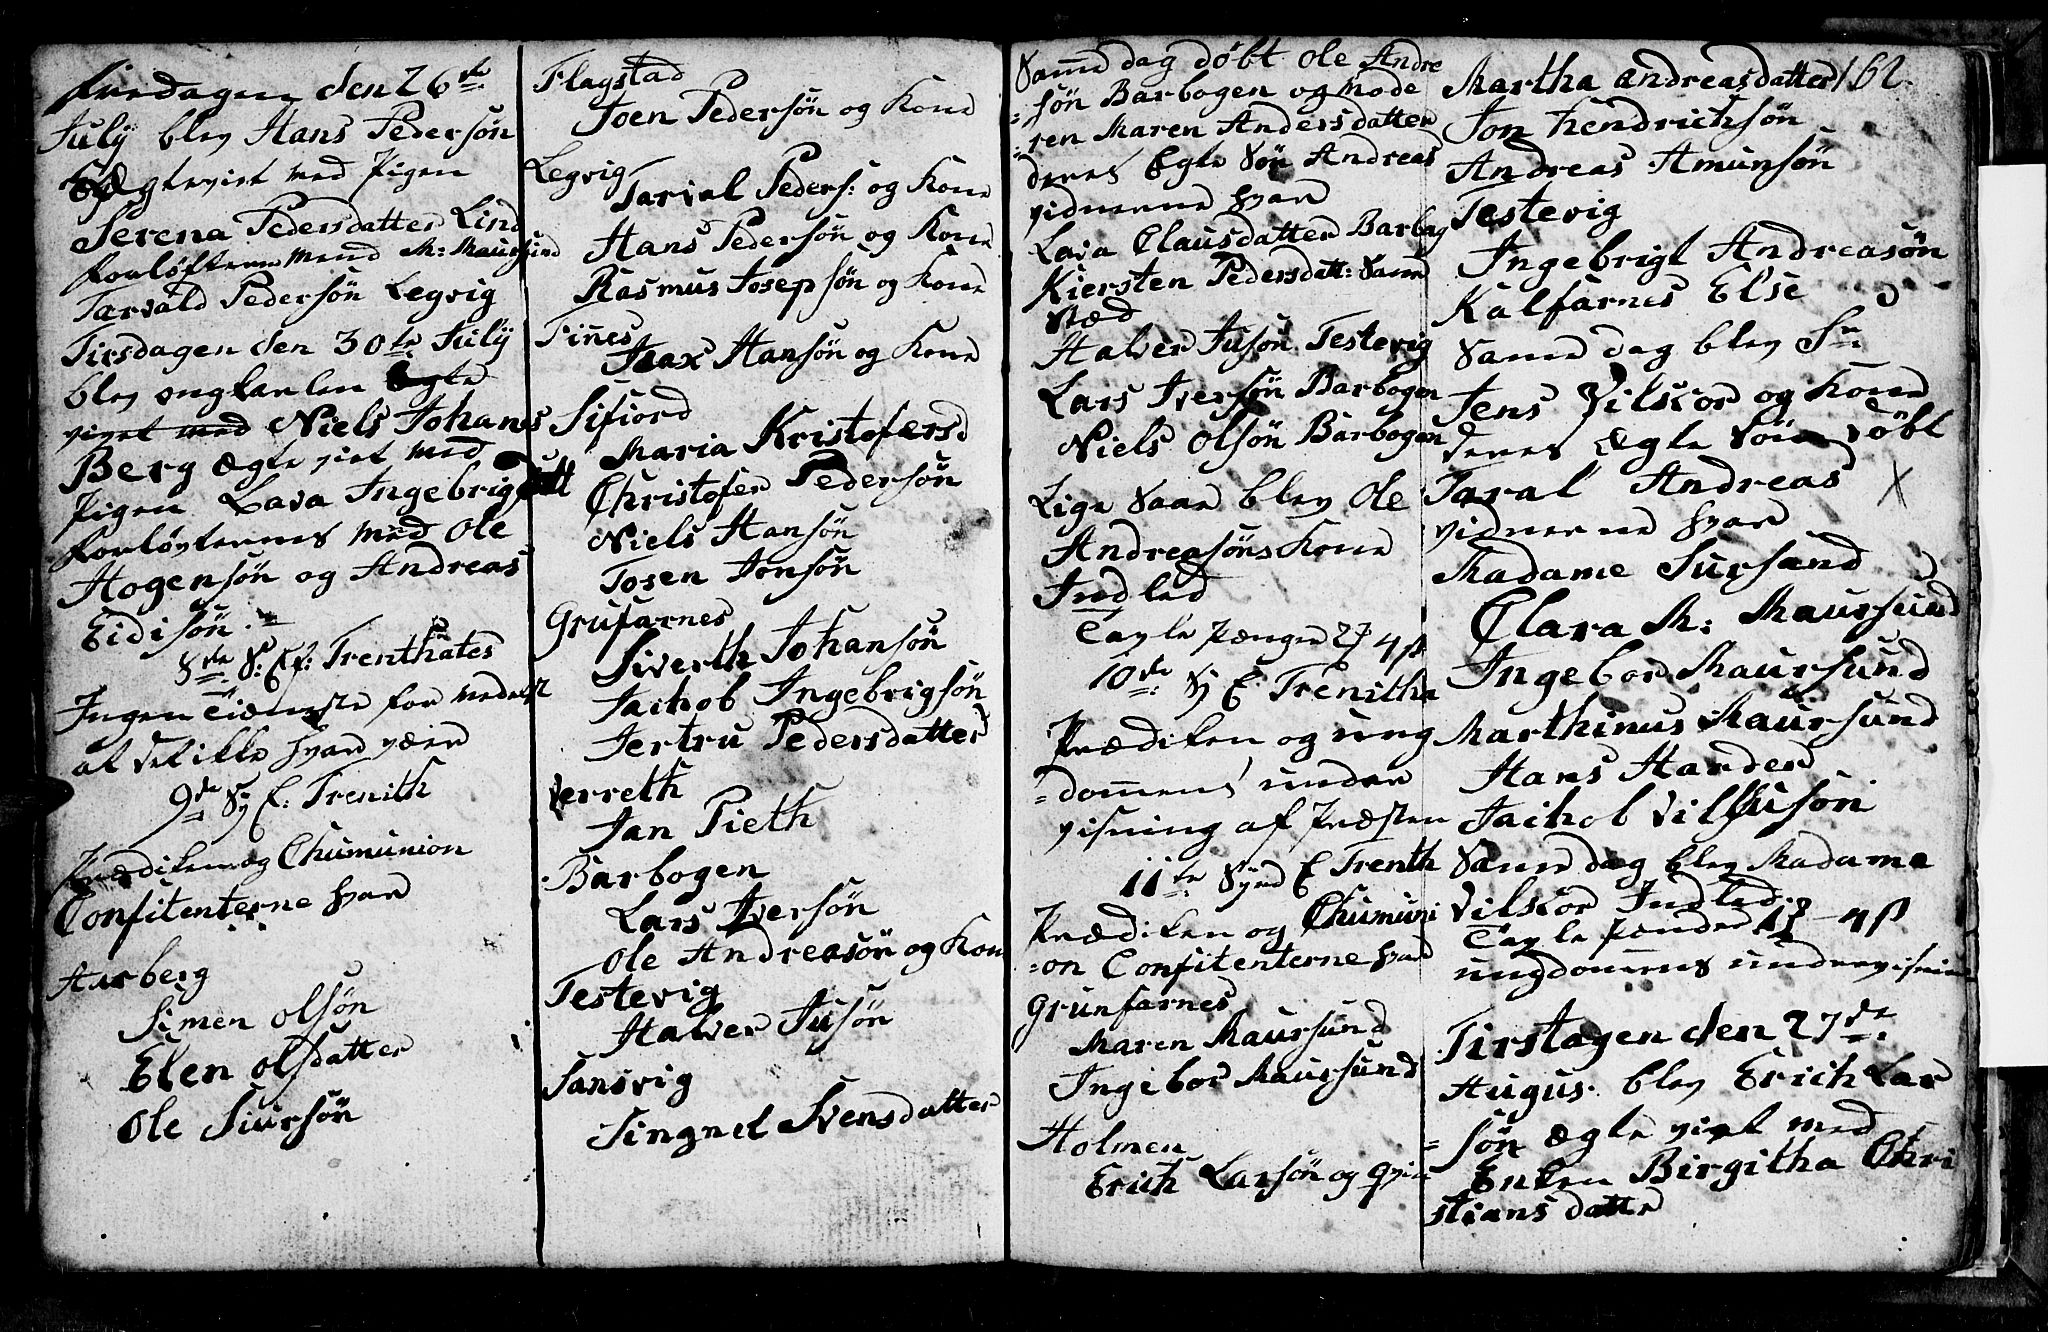 fredagen den 26de
July blev Hans Pedersøn
Ægteviet med Pigen
Serena Pedersdatter Lind
forløfterne mend M: Maursund
Torvald Pedersøn Legvig
Tirsdagen den 30te July
blev ongkarlen Egte
viget med Niels Johans
Berg ægte viet med
Pigen Lava Ingebrigsdatt
forløvternes med Ole
Hogensøn og Andreas
Eidisøn
8de S: Ef: Trenthates
Ingen Tiæneste for medelst
at det ikke hvar væir
9de Sy E: Trenith
Prædiken og Chumunion
Confitenterne hvar
Aarberg
Simen Olsøn
Elen Olsdatter
Ole Siursøn
Flagstad
Joen Pedersøn og Kone
Legvig
Tarial Peders: og Kone
Hans Pedersøn og Kone
Rasmus Josepsøn og Kone
Finnes
Isax Hansøn og Kone
Sifiord
Maria Kristofersd
Christofer Pedersøn
Niels Hansøn
Tosen Jonsøn
Grufarnes
Siverth Johansøn
Jaihob Ingebrigsøn
Jertru Pedersdatter
Verreth
Jan Pieth
Barbogen
Lars Iversøn
Ole Andreasøn og Kon
Testevig
Halver Jusøn
Sansvig
Singnel Svensdatter
162
Samme dag døbt Ole Andre
=søn Barbogen og Mode
=ren Maren Andersdatter
deres Ægte Søn Andreas
vidnerne hvar
Lava Clausdatter Barbag
Kiersten Pedersdatt: Samme
Stæd
Halver Jusøn Testevig
Lars Iversøn Barbogen
Niels Olsøn Barbogen
Lige Saa blev Ole
Andreasøns Kone
Indled
Tavle Penger 27 4ß
10de Sy E Trenitha
Prædiken og ung
=dommens under
visning af Præsten
11te Synd E Trenth
Prædiken og Chumuni
=on Confitenterne hvar
Grunfarnes
Maren Maursund
Ingebor Maursund
Holmen
Erich Larsøn og qvin
Martha Andreasdatter
Jon Hendrichsøn
Andreas Amunsøn
Testevig
Ingebrigt Andreasøn
Kalfarnes Else
Samme dag blev Sr
Jens Vilscod og Kone
deres Ægte Søn Døbt
Taral Andreas X
vidnerne hvar
Madame Sursand
Clara M: Maursund
Ingebor Maursund
Marthinus Maursund
Hans Harder
Jaihob Vilhusøn
Samme dag blev Madame
Vilscod Indled
Tavle Pender 1 4ß
ungdomens undervisning
Tirstagen den 27de
Augus blev Erich Lar
=søn ægte viet med
Enken Birgitha Chri
stians datter